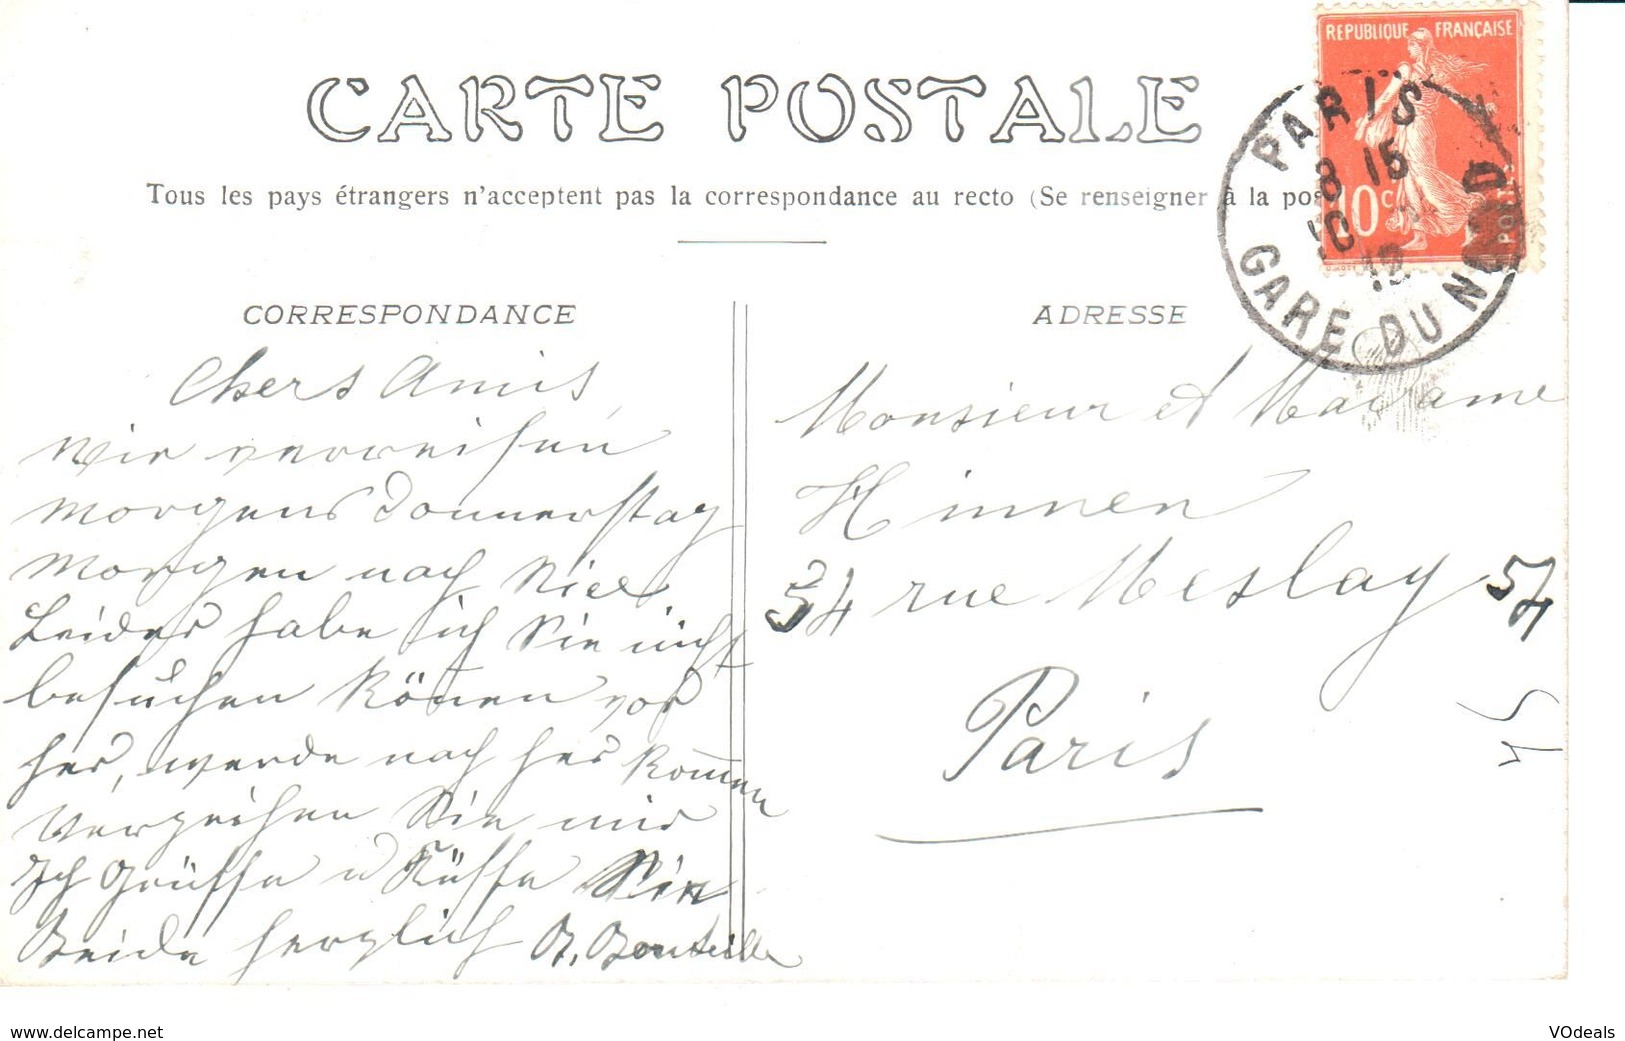 CARTE POSTALE
Tous les pays étrangers n'acceptent pas la correspondance au recto (Se renseigner à la pos
REPUBLIQUE FRANÇAISE
10 c
POSTES
PARIS
8 15
10
12
GARE DU NORD
CORRESPONDANCE
Chers Amis,
Wir verreisen
morgens Donnerstag
Morgen nach Nice
Leider habe ich Sie nicht
besuchen könen vor
her, werde nach her komen
Verzeihen Sie mir
Ich Grüsse u Küsse Sie
Beide herzlich B. Bouteille
ADRESSE
Monsieur et Madame
Hinnen
54 rue Meslay 54
Paris
www.delcampe.net
VOdeals